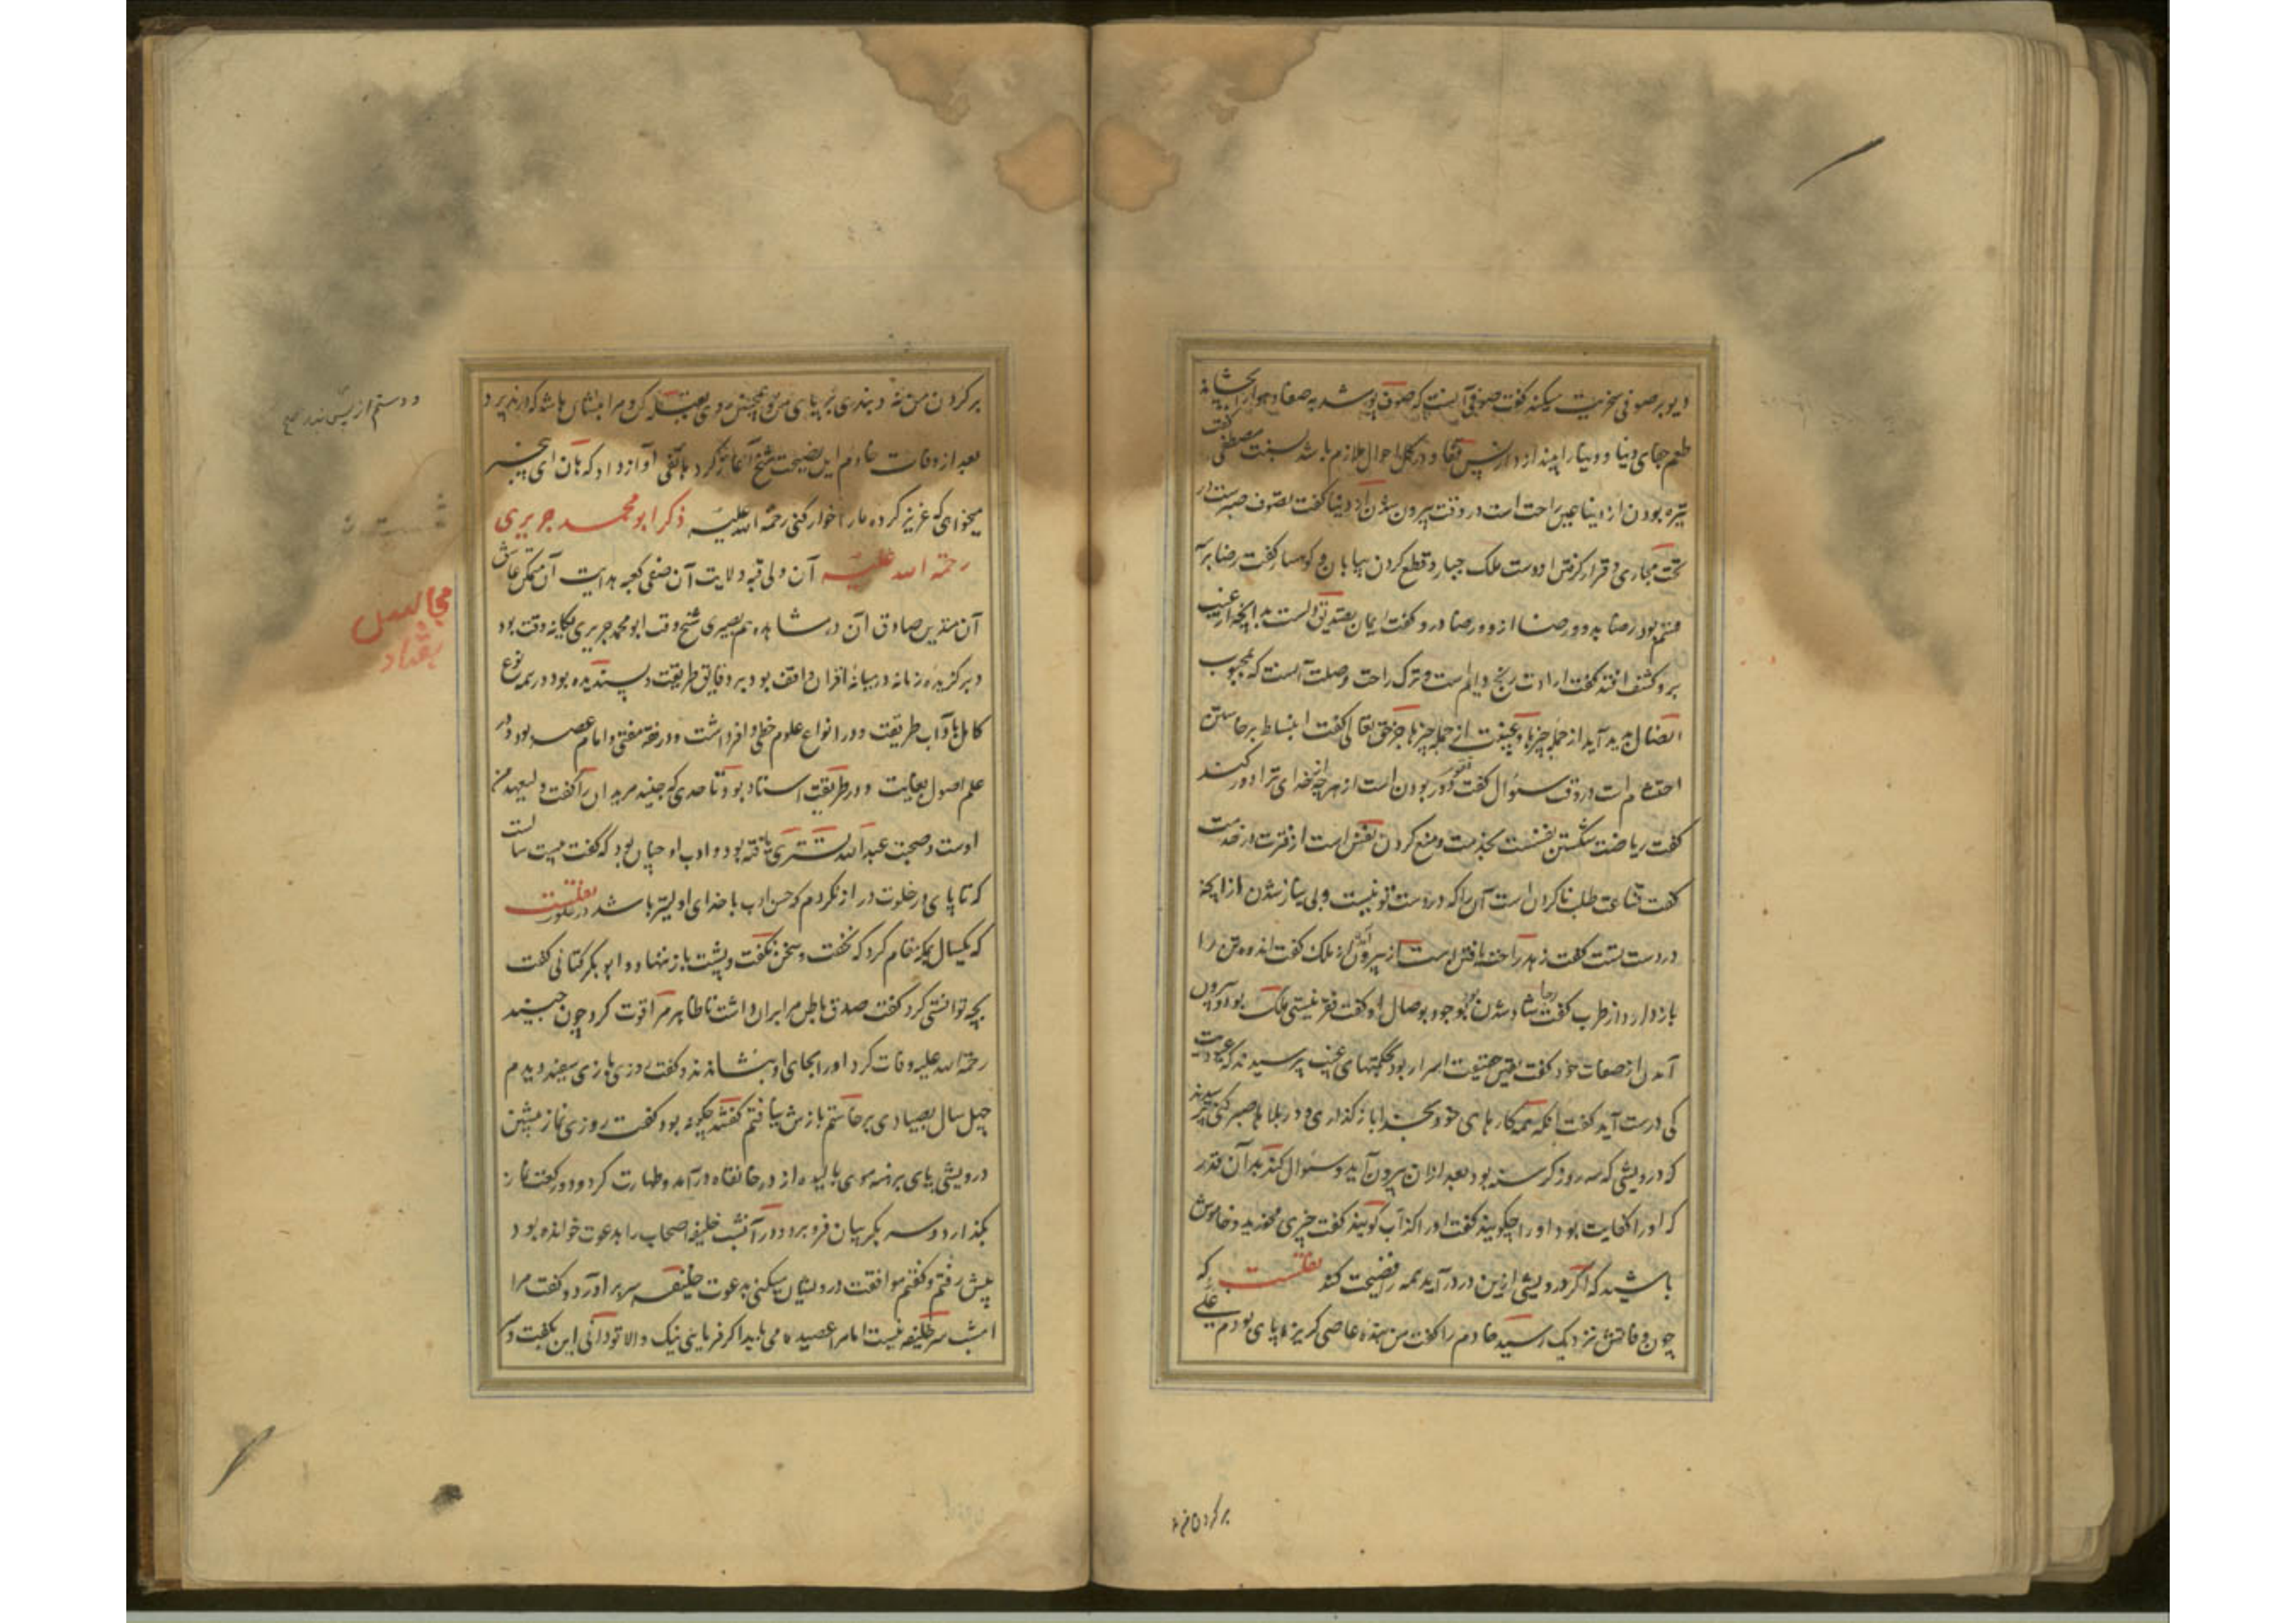 دیو بر صوفی سخریت میکند گفت صوفی آنست که صوف پوشد به صفا و هوا را بچشاند
طعم جفای دنیا و دنیا را بیندازد از پس قفا و در کل احوال ملازم باشد بسنت مصطفی گفت
تیره بودن از دنیا عین راحت است در وقت بیرون شدن از دنیا گفت تصوف صبرست در
تحت مجاری و قرار گرفتن از دست ملک جبار و قطع کردن بیابان و کوهسار گفت رضا بر
قسم بود رضا بدو و رضا ازو و رضا درو گفت ایمان تصدیق دلست بدانچه از غیب
برو کشف افتد گفت ارادت رنج دایم است و ترک راحت وصلت آنست که بمحبوب
اتصال پدید آید از جمله چیزها و غیبت از جمله چیزها جز حق تعالی گفت انبساط برخاستن
احتشام است در وقت سئوال گفت تقوی دور بودن است از هرچه از خدای ترا دور کند
گفت ریاضت شکستن نفسست بخدمت و منع کردن نفس است از فترت در خدمت
گفت قناعت طلب ناکردن است آن را که در دست تو نیست و بی نیاز شدن از آنچه
در دست تست گفت زهد راحت یافتن است از بیرون آمدن از ملک گفت اندوه تن را
باز دارد از طرب گفت رجا شاد شدن بود بوجود وصال او گفت فقر نیستی ملک بود و بیرون
آمدن از صفات خود گفت یقین حقیقت اسرار بود بحکمتهای غیب پرسیدند که عبودیت
کی درست آید گفت آنکه همه کارهای خود بخدا باز گذاری و در بلاها صبر کنی پرسیدند
که درویشی که سه روز گرسنه بود بعد از آن بیرون آید و سئوال کند بدان قدر
که او را کفایت بود او را چگویند گفت او را کذاب گویند گفت چیزی مخورید و خاموش
باشید که اگر درویشی ازین در درآید همه را فضیحت کند نقلست که
چون وفاتش نزدیک رسید خادم را گفت من بنده عاصی گریز پای بودم غلی
بر گردن من نه
بر گردن من نه و بندی بر پای من و همچنین روی بقبله کن و مرا بنشان باشد که در پذیرد
بعد از وفات خادم این نصیحت شیخ آغاز کرد هاتفی آواز داد که هان ای بیخبر
میخواهی که عزیز کرده ما را خوار کنی رحمة الله علیه ذکر ابو محمد جریری
رحمة الله علیه آن ولی قبه ولایت آن صفی کعبه هدایت آن متمکن عاشق
آن متدین صادق آن در مشاهده هم بصیری شیخ وقت ابو محمد جریری یگانه وقت بود
و برگزیده زمانه در میانه اقران واقف بود بر دقایق طریقت و پسندیده بود در همه نوع
کامل بآداب طریقت و در انواع علوم حظی وافر داشت و در فقه مفتی و امام عصر بود و در
علم اصول بغایت و در طریقت استاد بود تا حدی که جنید مریدان را گفت ولیعهد من
اوست و صحبت عبدالله تستری یافته بود و ادب او چنان بود که گفت بیست سالست
که تا پای در خلوت دراز نکردم که حسن ادب با خدای اولیتر باشد نقلست
که یکسال بمکه مقام کرد که نخفت و سخن نگفت و پشت باز ننهاد و ابوبکر کتانی گفت
بچه توانستی کرد گفت صدق باطن مرا بران داشت تا ظاهر مرا قوت کرد چون جنید
رحمة الله علیه وفات کرد او را بجای او بنشاندند و گفت روزی بازی سپید دیدم
چهل سال بصیادی برخاستم بازش نیافتم گفتند چگونه بود گفت روزی نماز پیشین
درویشی پای برهنه موی بالیده از در خانقاه درآمد و طهارت کرد و دو رکعت نماز
بگذارد و سر بگریبان فرو برد و در آن شب خلیفه اصحاب را بدعوت خوانده بود
پیش رفتم و گفتم موافقت درویشان میکنی بدعوت خلیفه سر برآورد و گفت مرا
امشب سر خلیفه نیست اما مرا عصیده می باید اگر فرمایی نیک و الا تو دانی این بگفت و سر
و دستم از پس بند
مجالس
بغداد